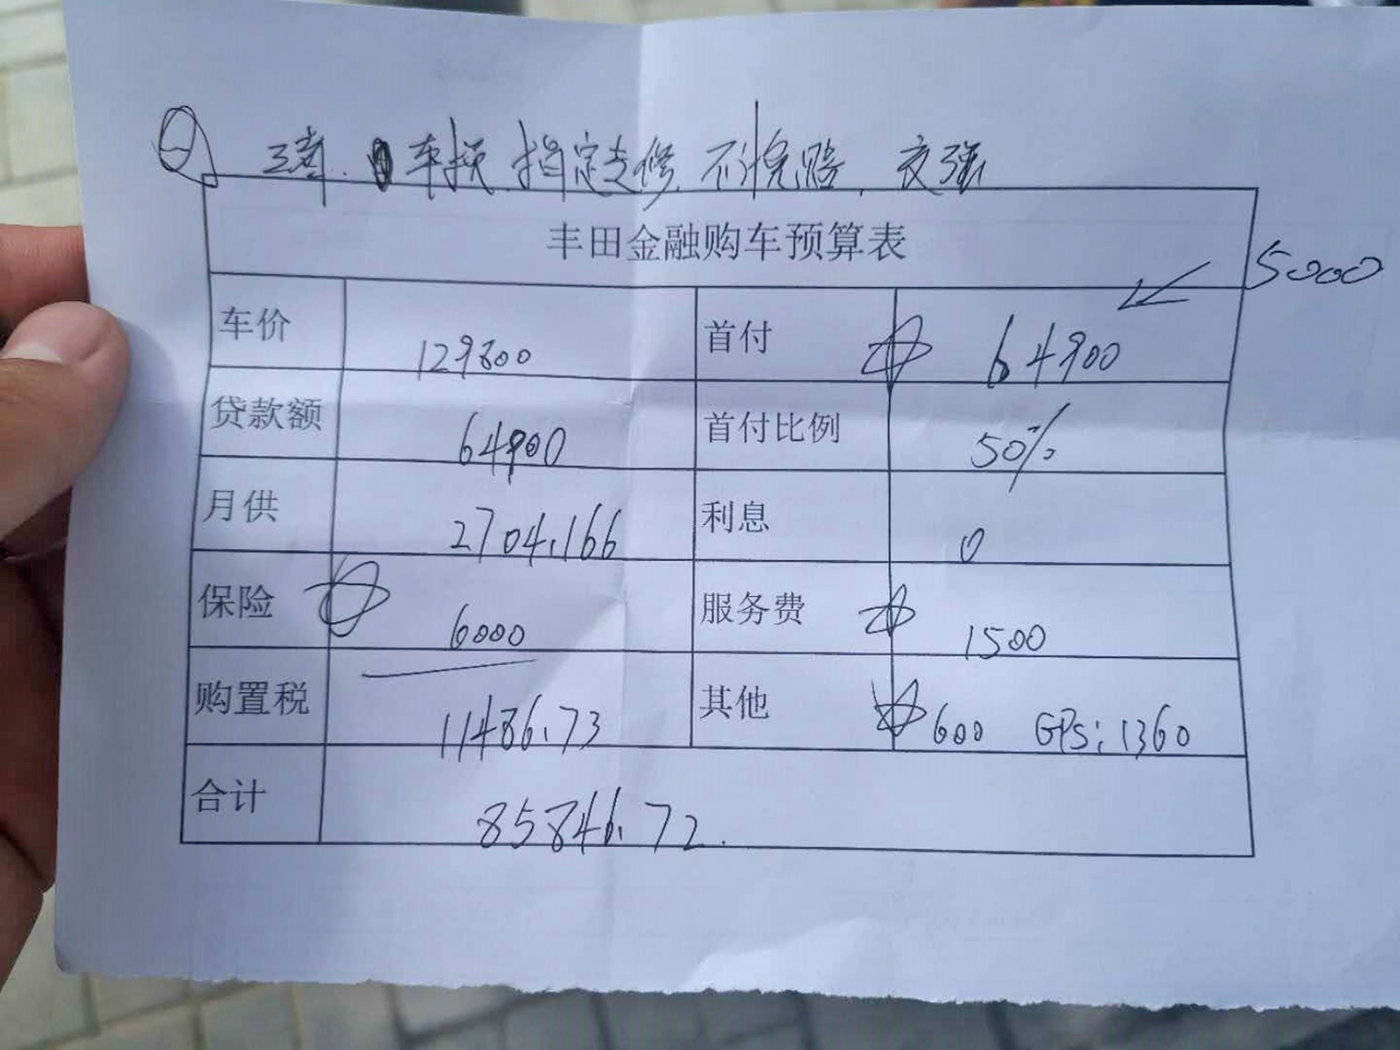 三者. 车损 指定专修 不计免赔, 交强
丰田金融购车预算表
5000
车价 129800 首付 64900
贷款额 64900 首付比例 50%
月供 2704.166 利息 0
保险 6000 服务费 1500
购置税 11486.73 其他 600 GPS: 1360
合计 85846.72.